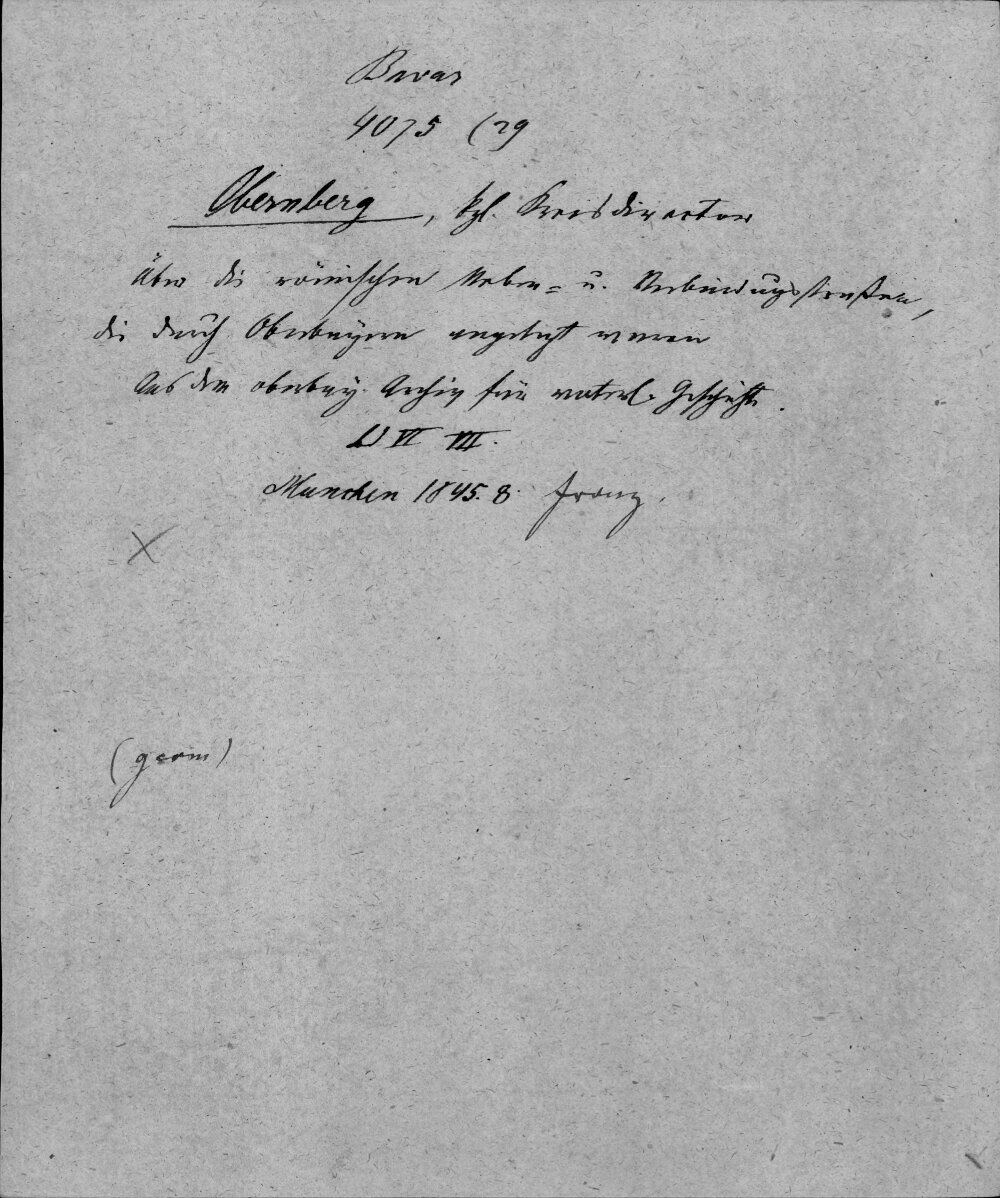 Bavar
4075 (29
Obernberg, kgl. Kreisdirector
Über die römischen Neben- u. Verbindungsstraßen,
die durch Oberbayern angelegt waren
Aus dem oberbay. Archiv für vaterl. Geschichte.
VI VII.
München 1845. 8. Franz.
X
(germ)